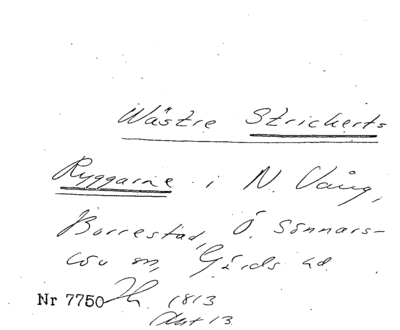 Wästre Strickerts
Ryggarne i N. Vång,
Borrestad, Ö. Sönnars-
löv sn, Gärds hd.
Nr 7750 Lh. 1813
Akt 13